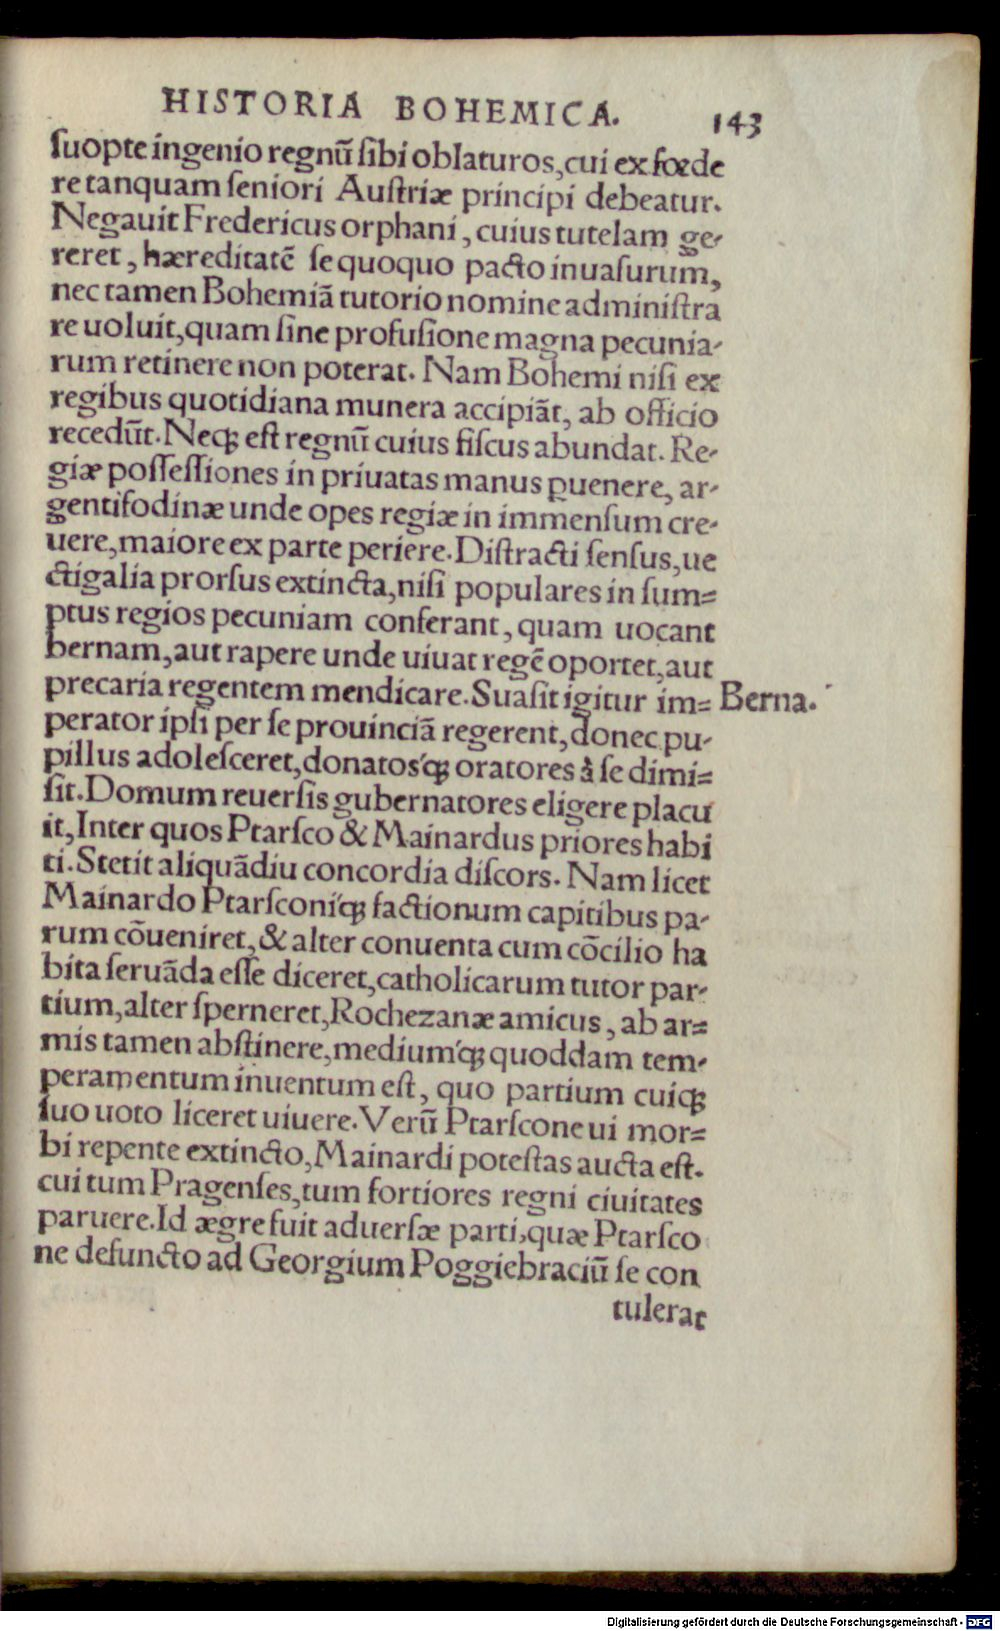 HISTORIA BOHEMICA. 143
ſuopte ingenio regnū ſibi oblaturos, cui ex fœde
re tanquam ſeniori Auſtriæ principi debeatur.
Negauit Fredericus orphani, cuius tutelam ge-
reret, hæreditatē ſe quoquo pacto inuaſurum,
nec tamen Bohemiā tutorio nomine adminiſtra
re uoluit, quam ſine profuſione magna pecunia-
rum retinere non poterat. Nam Bohemi niſi ex
regibus quotidiana munera accipiāt, ab officio
recedūt. Neq; eſt regnū cuius fiſcus abundat. Re-
giæ poſſeſſiones in priuatas manus ꝑuenere, ar-
gentifodinæ unde opes regiæ in immenſum cre-
uere, maiore ex parte periere. Diſtracti ſenſus, ue
ctigalia prorſus extincta, niſi populares in ſum=
ptus regios pecuniam conferant, quam uocant
bernam, aut rapere unde uiuat regē oportet, aut
precaria regentem mendicare. Suaſit igitur im= Berna.
perator ipſi per ſe prouinciā regerent, donec pu-
pillus adoleſceret, donatos'q; oratores à ſe dimi=
ſit. Domum reuerſis gubernatores eligere placu
it, Inter quos Ptarſco & Mainardus priores habi
ti. Stetit aliquādiu concordia diſcors. Nam licet
Mainardo Ptarſconi'q; factionum capitibus pa-
rum cōueniret, & alter conuenta cum cōcilio ha
bita ſeruāda eſſe diceret, catholicarum tutor par-
tium, alter ſperneret, Rochezanæ amicus, ab ar=
mis tamen abſtinere, medium'q; quoddam tem-
peramentum inuentum eſt, quo partium cuiq;
ſuo uoto liceret uiuere. Verū Ptarſcone ui mor=
bi repente extincto, Mainardi poteſtas aucta eſt.
cui tum Pragenſes, tum fortiores regni ciuitates
paruere. Id ægre fuit aduerſæ parti, quæ Ptarſco
ne defuncto ad Georgium Poggiebraciū ſe con
tulerat
Digitalisierung gefördert durch die Deutsche Forschungsgemeinschaft - DFG